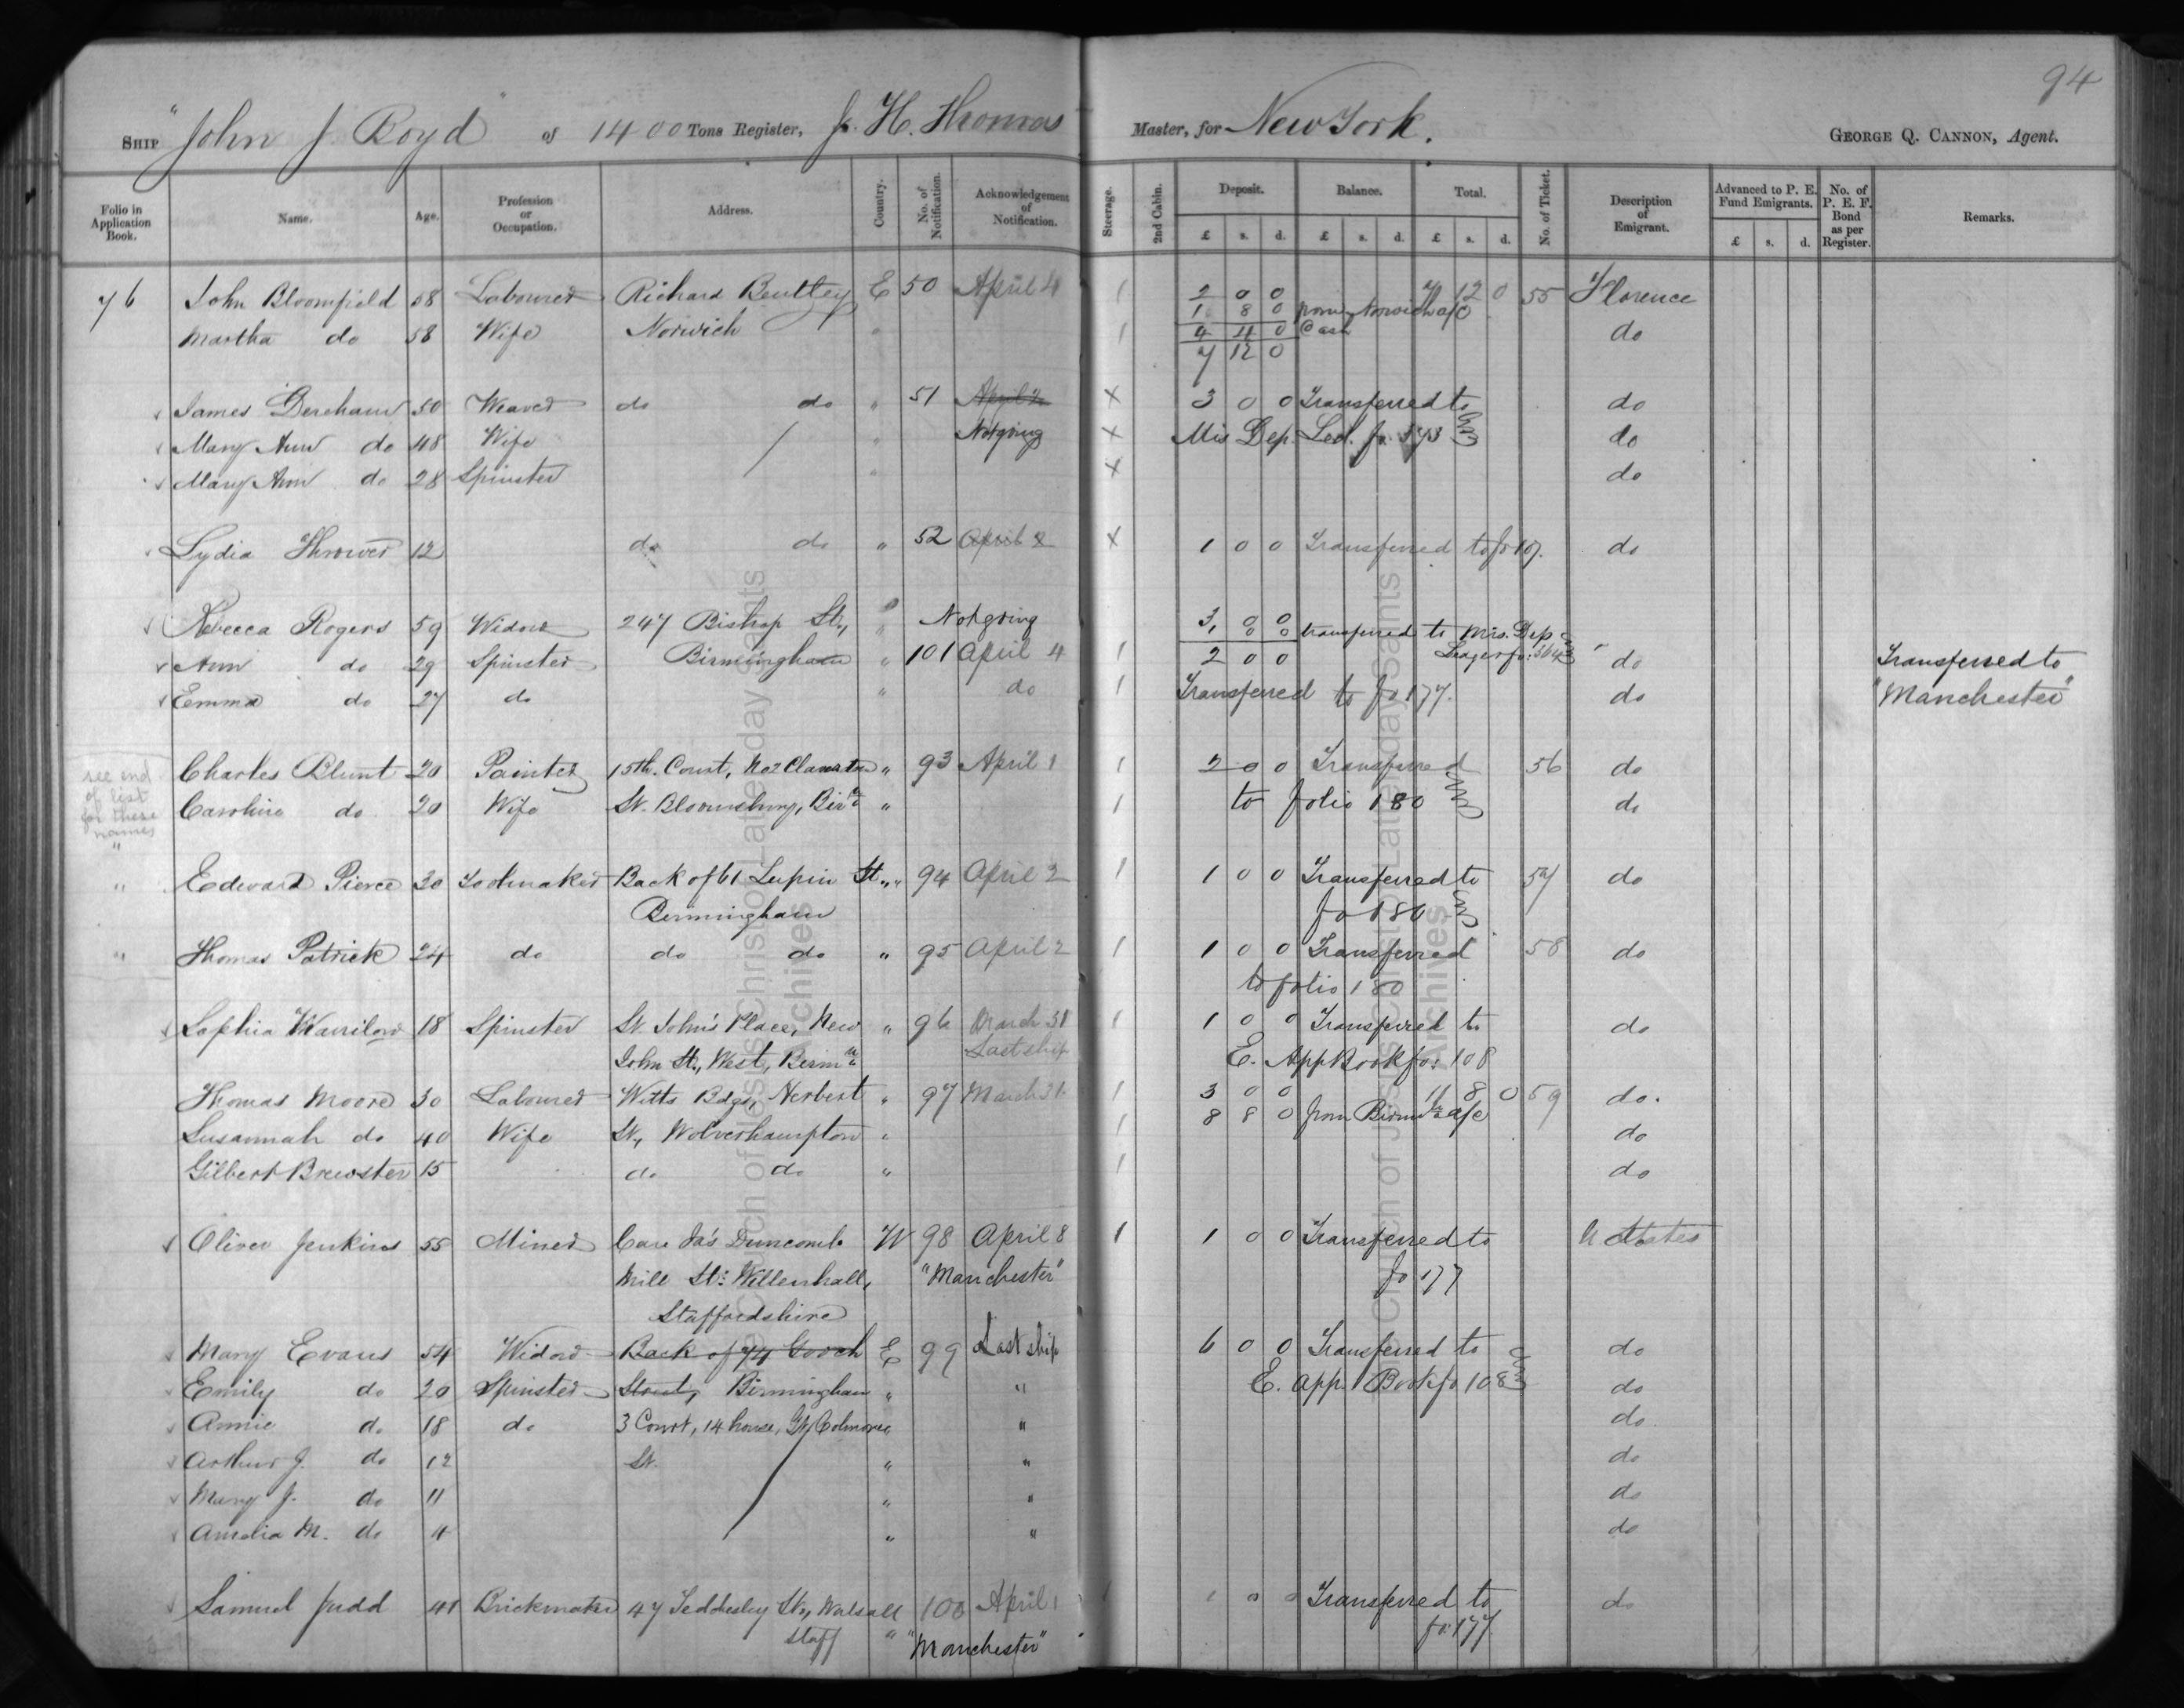 94
SHIP "John J. Boyd" of 1400 Tons Register, J. H. Thomas Master, for New York. GEORGE Q. CANNON, Agent.
Folio in Application Book. Name. Age. Profession or Occupation. Address. Country. No. of Notification. Acknowledgement of Notification. Steerage. 2nd Cabin. Deposit. £ s. d. Balance. £ s. d. Total. £ s. d. No. of Ticket. Description of Emigrant. Advanced to P. E. Fund Emigrants. £ s. d. No. of P. E. F. Bond as per Register. Remarks.
76 John Bloomfield 58 Labourer Richard Bentley E 50 April 4 1 2 0 0 7 12 0 55 Florence
1 8 0 from Norwich a/c
Martha do 58 Wife Norwich " 1 4 4 0 Cash do
7 12 0
James Dereham 50 Weaver do do " 51 April 2 X 3 0 0 Transferred to do
Mary Ann do 48 Wife " Not going X Mis Dep. Led. fo 373 do
Mary Ann do 28 Spinster " X do
Lydia Thrower 12 do do " 52 April 2 X 1 0 0 Transferred to fo 107. do
Rebecca Rogers 59 Widow 247 Bishop St., " Not going 3 0 0 transferred to Mis. Dep
Ledger fo: 364
Ann do 29 Spinster Birmingham " 101 April 4 1 2 0 0 do Transferred to
Emma do 27 do " do 1 Transferred to fo 177. do "Manchester"
see end of list for these names
Charles Blunt 20 Painter 15th. Court, No 2 " 93 April 1 1 2 0 0 Transferred 56 do
Caroline do 20 Wife St. Bloomsbury, Birm " 1 to folio 180 do
" Edward Pierce 30 Toolmaker Back of 61 Lupin St., " 94 April 2 1 1 0 0 Transferred to 57 do
Birmingham fo 180
" Thomas Patrick 24 do do do " 95 April 2 1 1 0 0 Transferred 58 do
to folio 180
Sophia Warrilow 18 Spinster St. John's Place, New " 96 March 31 1 1 0 0 Transferred to do
John St., West, Birm " Last ship E. App Book fo: 108
Thomas Moore 30 Labourer Witts Bdgs, Herbert " 97 March 31 1 3 0 0 11 8 0 59 do.
8 8 0 from Birm a/c
Susannah do 40 Wife St., Wolverhampton " 1 do
Gilbert Brewster 15 do do " 1 do
Oliver Jenkins 55 Miner Care Jas Duncomb W 98 April 8 1 1 0 0 Transferred to U States
Mill St: Willenhall, "Manchester" fo 177
Staffordshire
Mary Evans 54 Widow Back of 74 Gooch E 99 Last ship 6 0 0 Transferred to do
Emily do 20 Spinster Street, Birmingham " " E. App. Book fo 108 do
Annie do 18 do 3 Court, 14 house, Gt. Colmore " " do
Arthur J. do 12 St. " " do
Mary J. do 11 " " do
Amelia M. do 11 " " do
Samuel Judd 41 Brickmaker 47 Teddesley St., Walsall 100 April 1 1 1 0 0 Transferred to do
Staff " "Manchester" fo 177